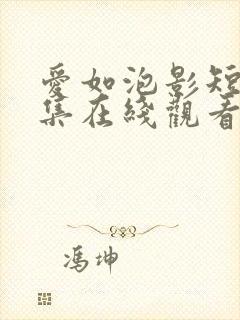 愛如泡影短
集在綫觀看
馮坤